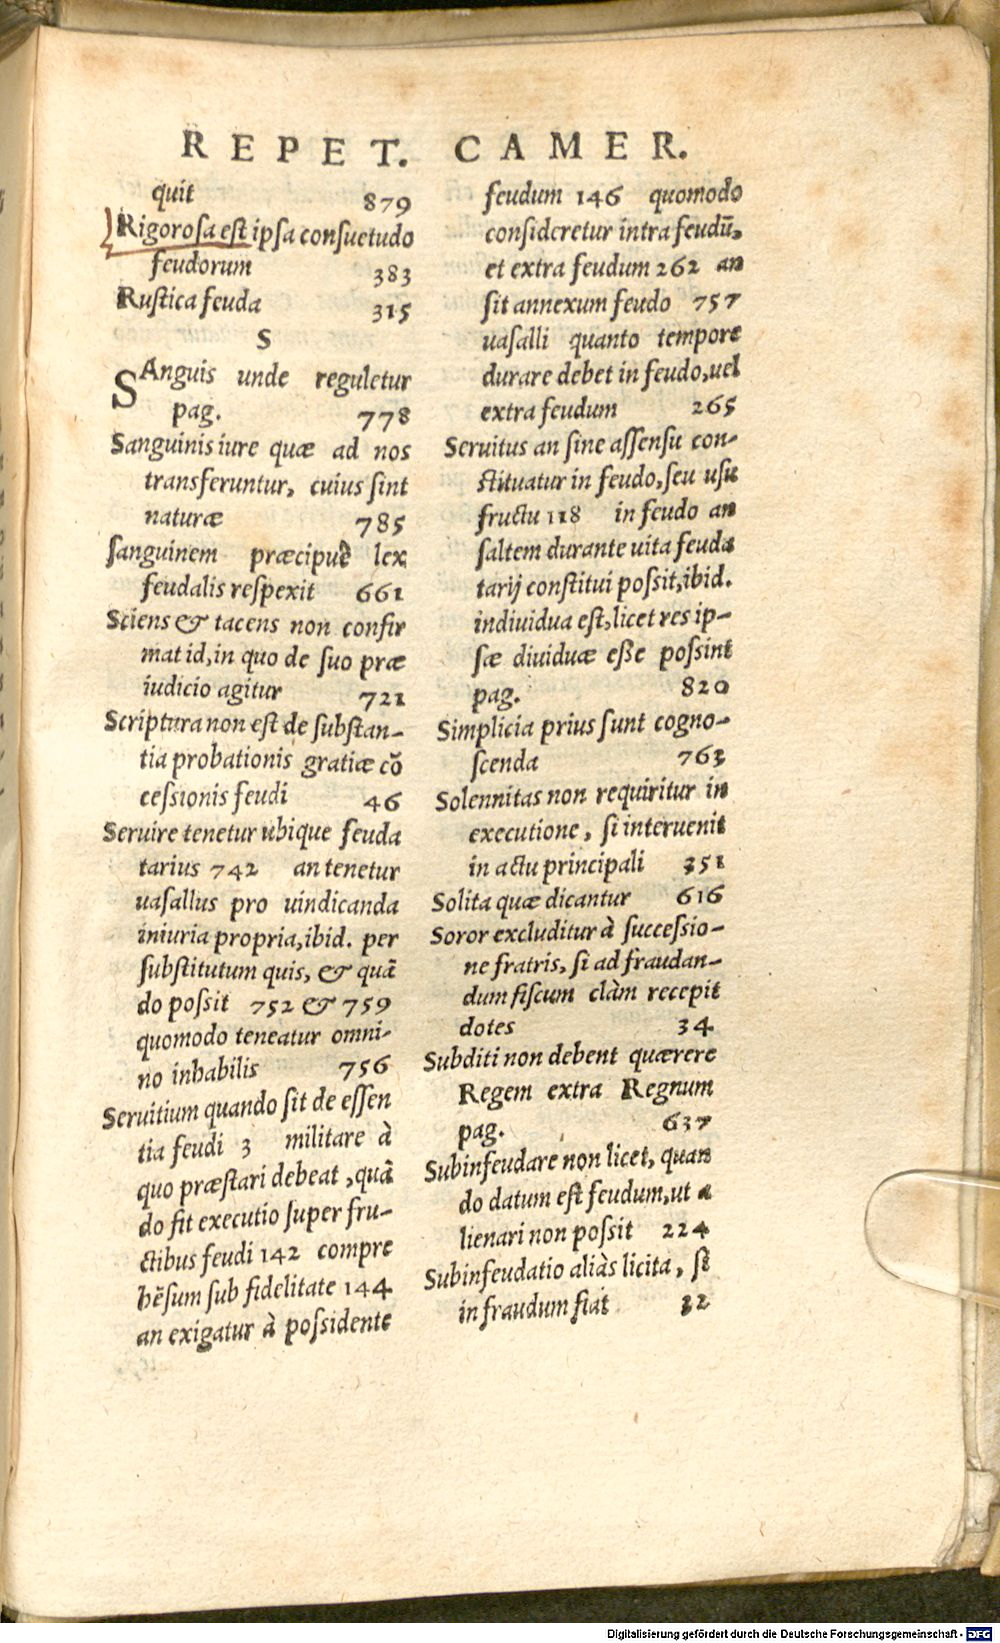 REPET. CAMER.
quit 879
Rigorosa est ipsa consuetudo
feudorum 383
Rustica feuda 315
S
SAnguis unde reguletur
pag. 778
Sanguinis iure quæ ad nos
transferuntur, cuius sint
naturæ 785
sanguinem præcipuè lex
feudalis respexit 661
Sciens & tacens non confir
mat id, in quo de suo præ
iudicio agitur 721
Scriptura non est de substan-
tia probationis gratiæ cõ
cessionis feudi 46
Seruire tenetur ubique feuda
tarius 742 an tenetur
uasallus pro uindicanda
iniuria propria, ibid. per
substitutum quis, & quã
do possit 752 & 759
quomodo teneatur omni-
no inhabilis 756
Seruitium quando sit de essen
tia feudi 3 militare à
quo præstari debeat, quã
do fit executio super fru-
ctibus feudi 142 compre
hẽsum sub fidelitate 144
an exigatur à possidente
feudum 146 quomodo
consideretur intra feudũ,
et extra feudum 262 an
sit annexum feudo 757
uasalli quanto tempore
durare debet in feudo, uel
extra feudum 265
Seruitus an sine assensu con-
stituatur in feudo, seu usu
fructu 118 in feudo an
saltem durante uita feuda
tarij constitui possit, ibid.
indiuidua est, licet res ip-
sæ diuiduæ esse possint
pag. 820
Simplicia prius sunt cogno-
scenda 763
Solennitas non requiritur in
executione, si interuenit
in actu principali 351
Solita quæ dicantur 616
Soror excluditur à successio-
ne fratris, si ad fraudan-
dum fiscum clàm recepit
dotes 34
Subditi non debent quærere
Regem extra Regnum
pag. 637
Subinfeudare non licet, quan
do datum est feudum, ut a
lienari non possit 224
Subinfeudatio aliàs licita, si
in fraudum fiat 32
Digitalisierung gefördert durch die Deutsche Forschungsgemeinschaft - DFG